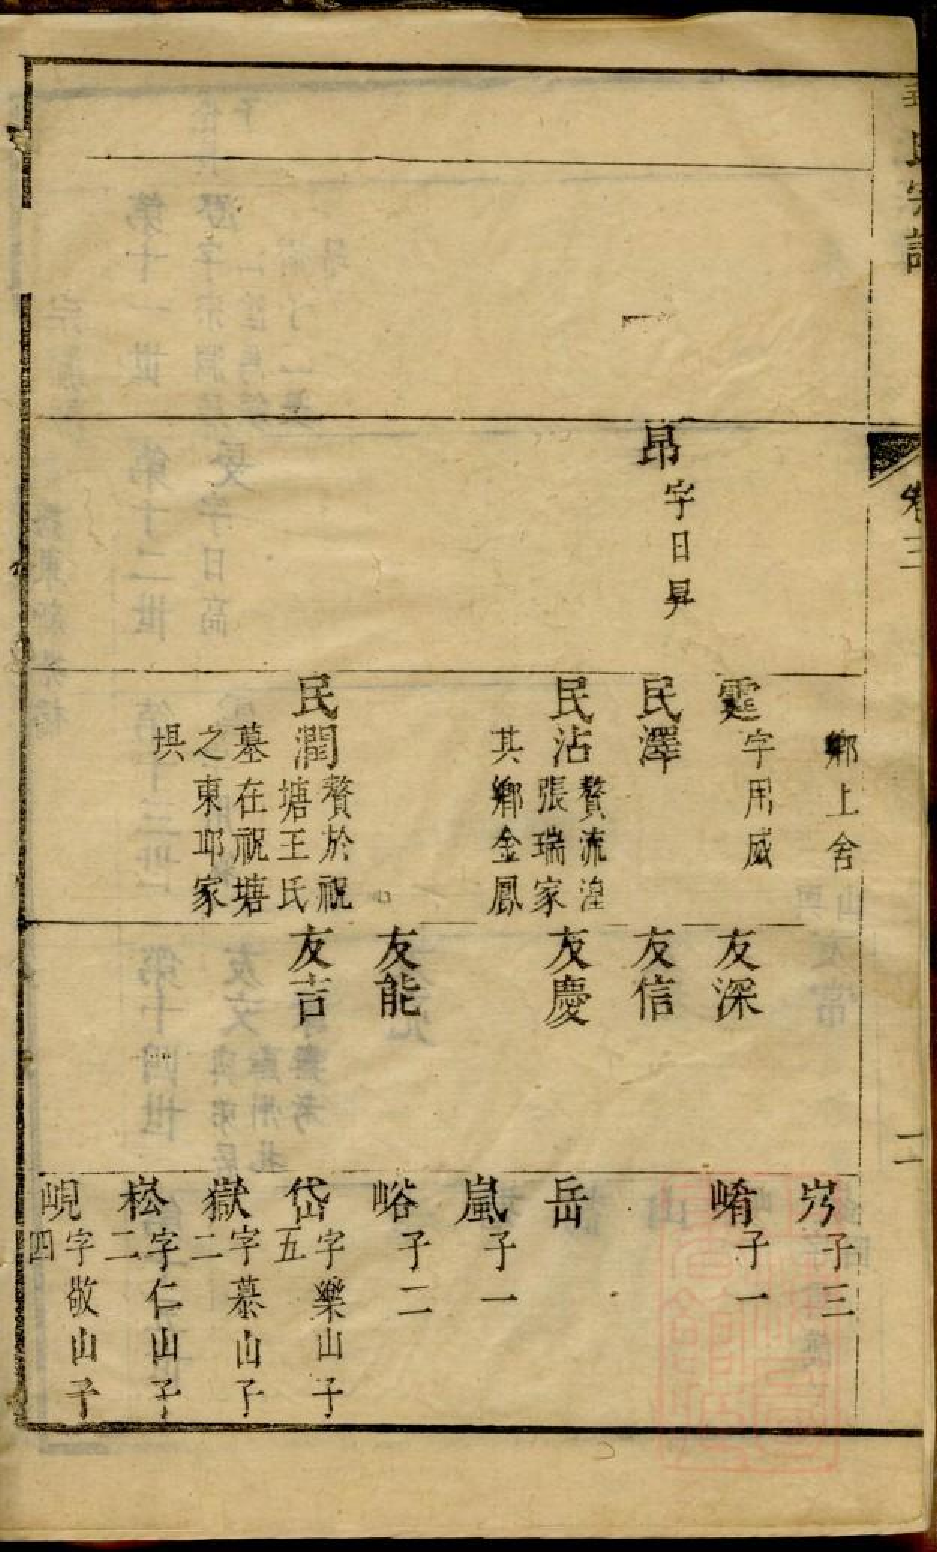 氏宗譜
卷三
二
昂
字日昇
鄉上舍
霆
字用威
民澤
民沾
贅流湟
張瑞家
其鄉金鳳
民潤
贅於祝
塘王氏
墓在祝塘
之東邛家
埧
友深
友信
友慶
友能
友吉
子三
崤
子一
岳
嵐
子一
峪
子二
岱
字樂山子
五
嶽
字慕山子
二
崧
字仁山子
二
峴
字敬山子
四